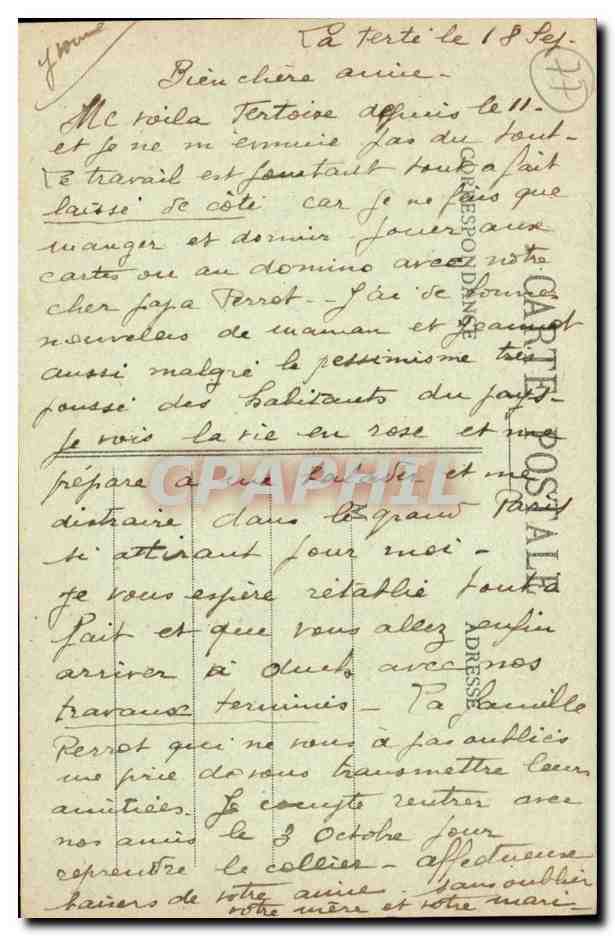 Yvonne
La ferté le 18 Sep.
77
Bien chère amie -
Me voila Fertoise depuis le 11 -
et je ne m'ennuie pas du tout -
Le travail est pourtant tout a fait
laissé de côté car je ne fais que
manger et dormir jouer aux
cartes ou au domino avec notre
cher papa Perrot - J'ai de bonnes
nouvelles de maman et Jeannot
aussi malgré le pessimisme très
poussé des habitants du pays -
je vois la vie en rose et me
prépare a me balader et me
distraire dans le grand Paris
si attirant pour moi -
Je vous espère rétablie tout a
fait et que vous allez enfin
arriver à avec nos
travaux terminés - La famille
Perrot qui ne vous a pas oubliés
me prie de vous transmettre leurs
amitiées. Je compte rentrer avec
nos amis le 3 Octobre pour
reprendre le collier - affectueux
baisers de votre amie. sans oublier
votre mère et votre mari -
CARTE POSTALE
CORRESPONDANCE
ADRESSE
CPAPHIL